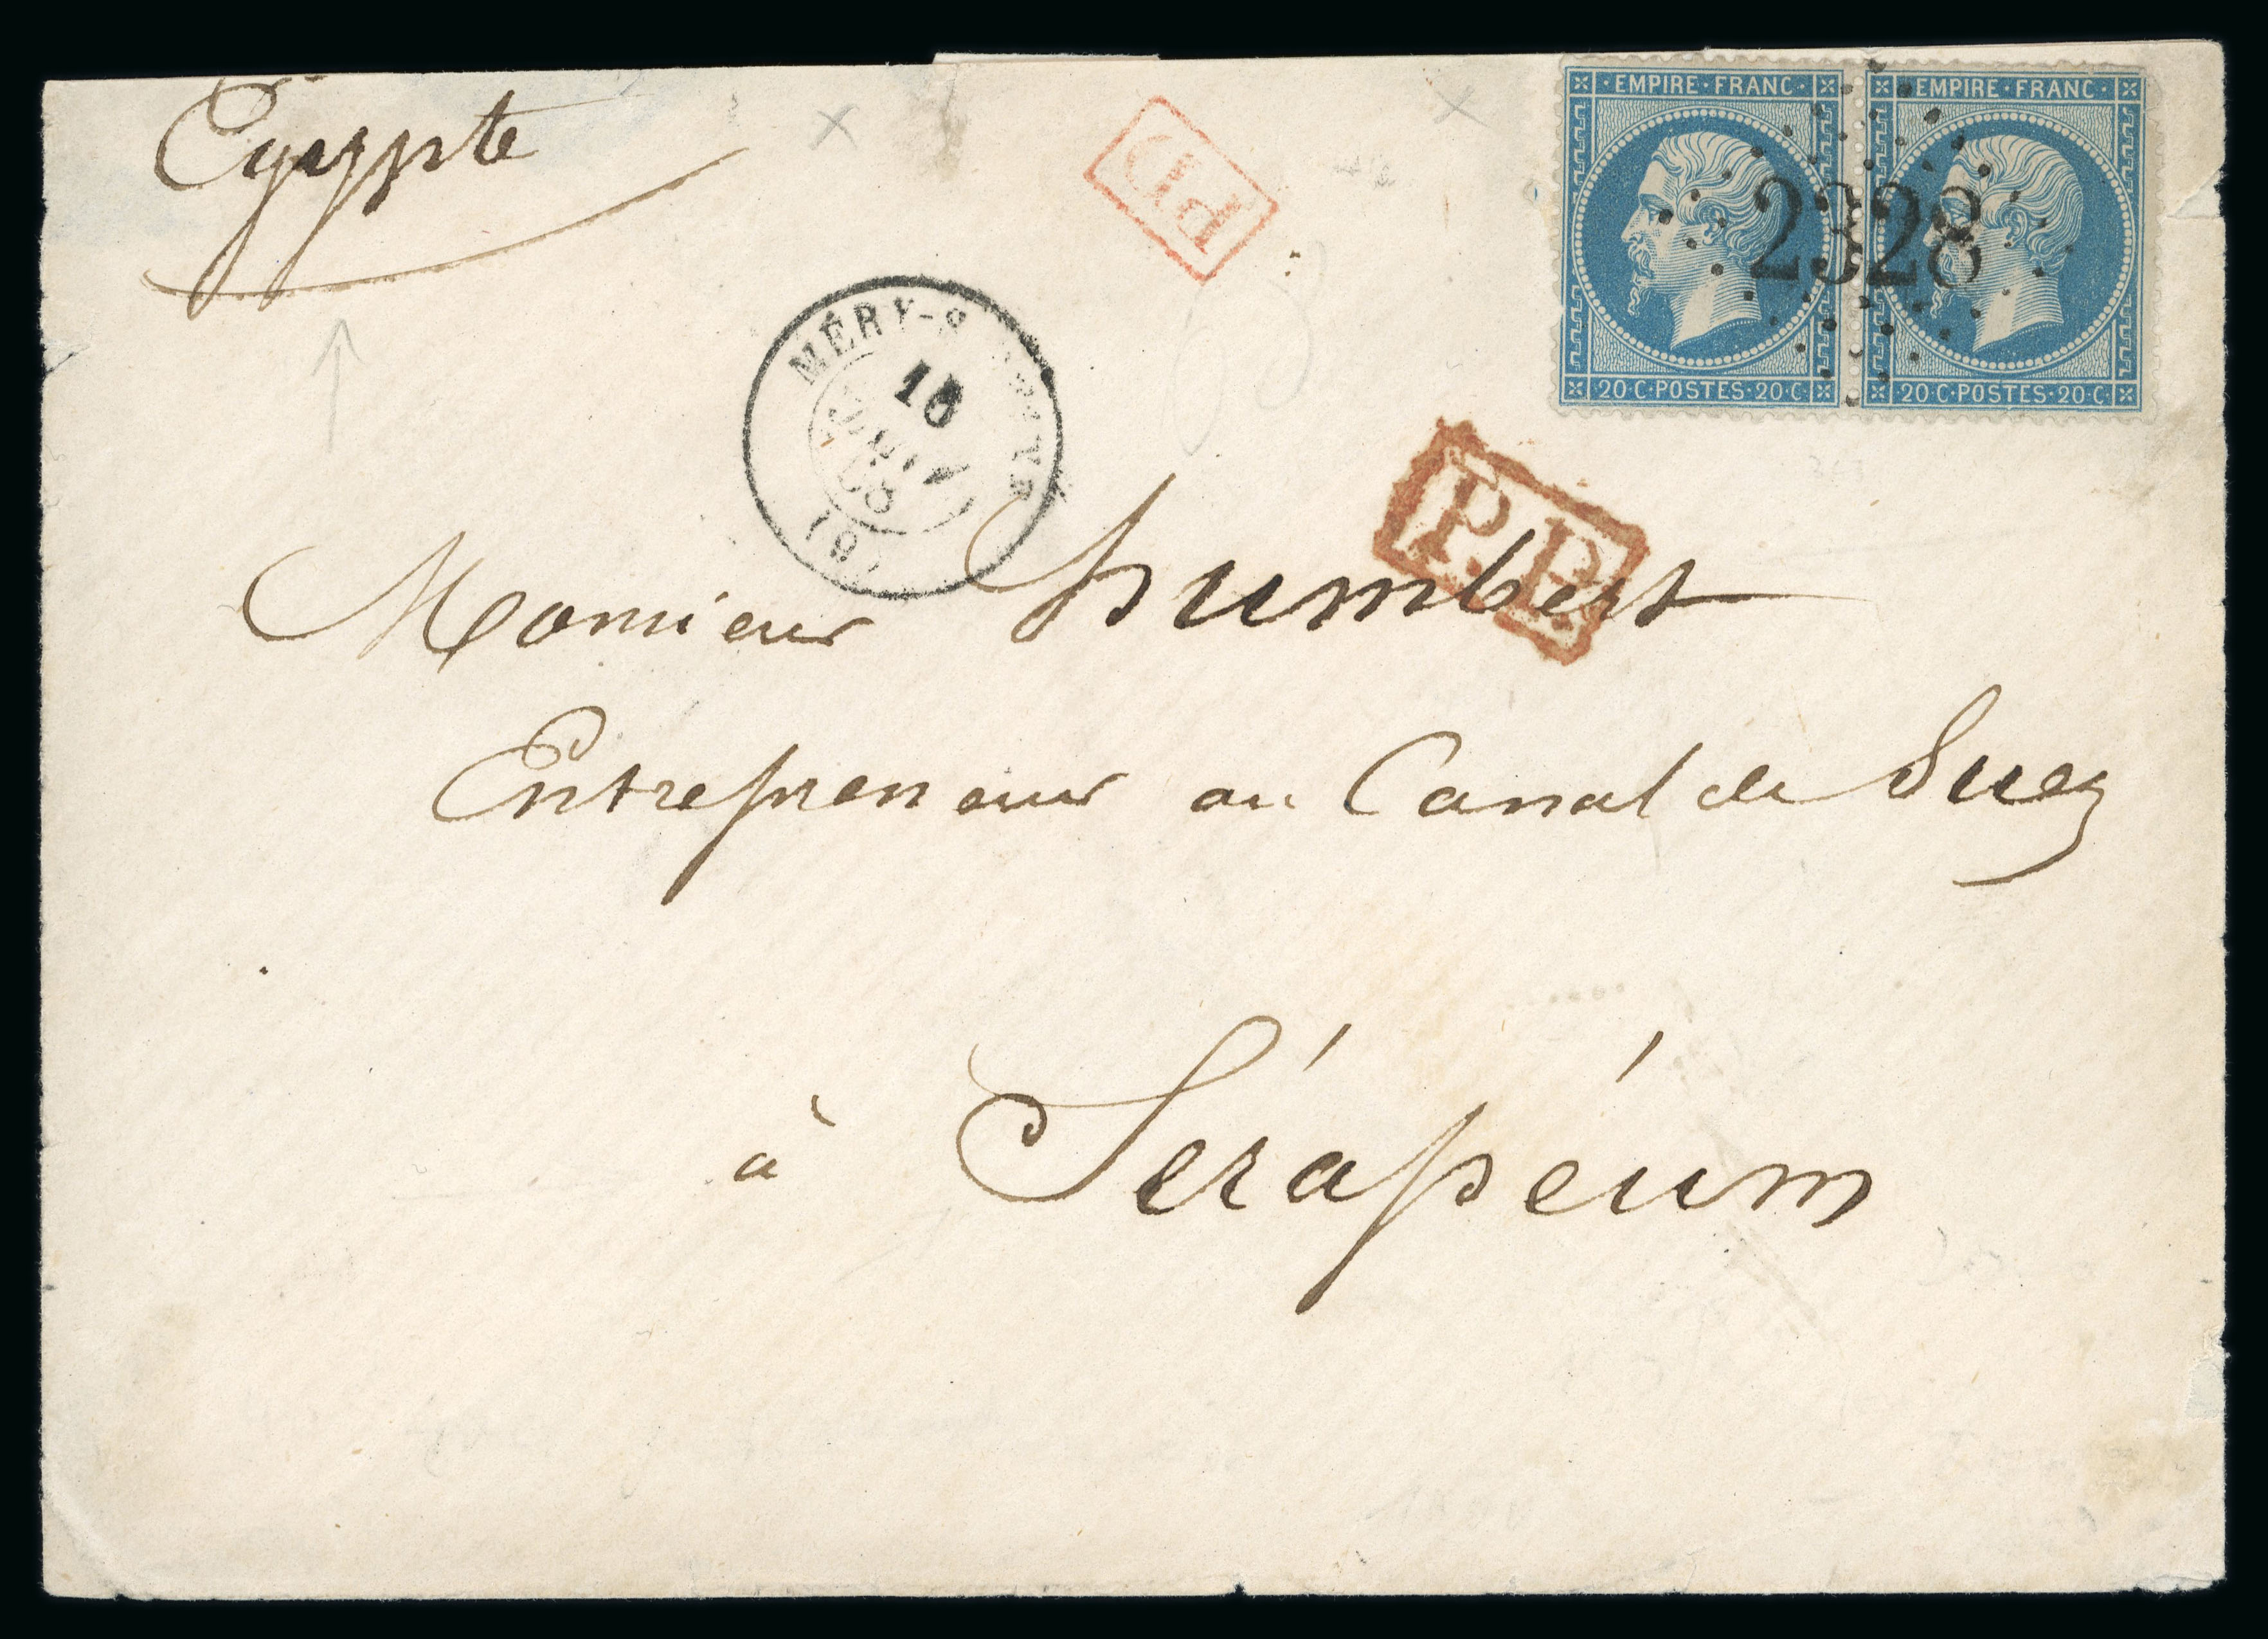 Egypte
PD
EMPIRE·FRANC· EMPIRE·FRANC·
2328
20·C·POSTES·20·C· 20·C·POSTES·20·C·
MÉRY-S
15
68
(9)
P.P.
Monsieur Humbert
Entrepreneur au Canal de Suez
à Sérapéum